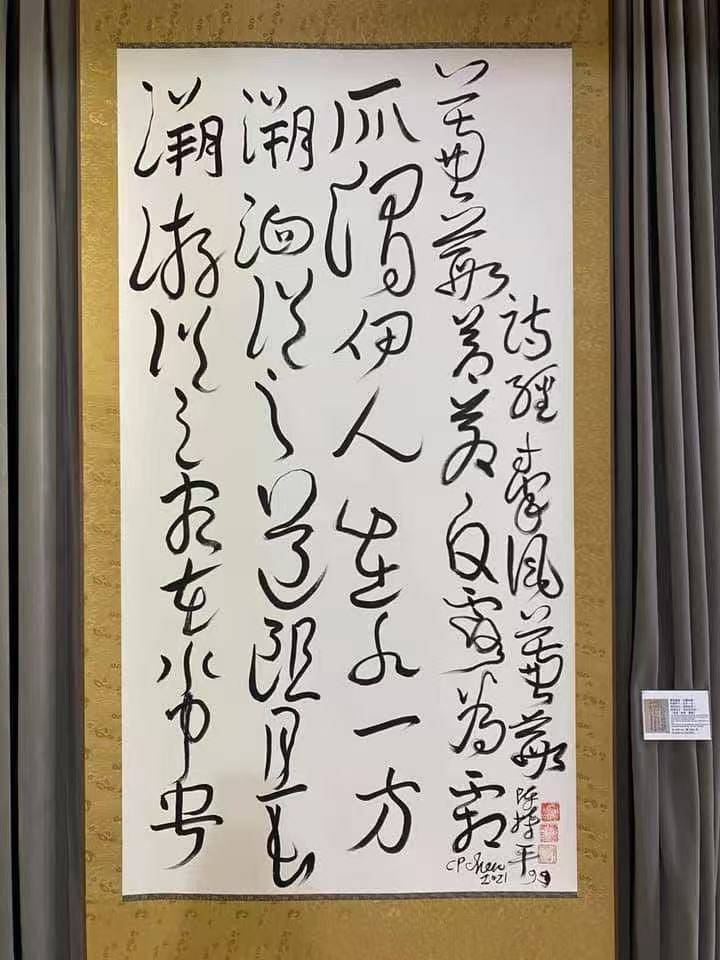 詩經秦風蒹葭 陳持平 99
蒹葭蒼蒼白露為霜
所謂伊人在水一方
溯洄從之道阻且長
溯游從之宛在水中央
CP Chen
2021